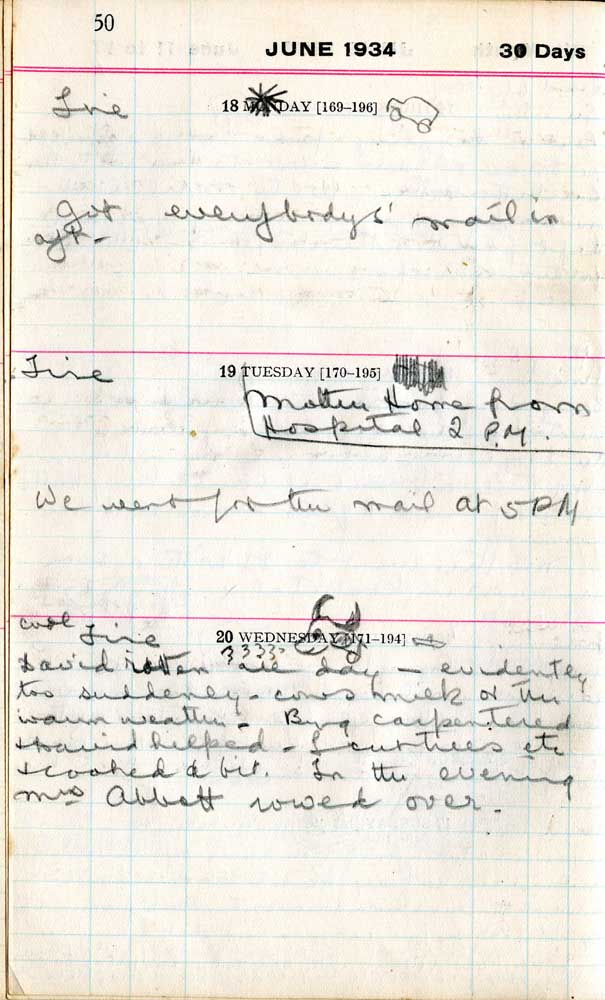 50
JUNE 1934
30 Days
18 MONDAY [169–196]
Fine
Got everybodys' mail in
aft-
19 TUESDAY [170–195]
Fine
Mother Home from
Hospital 2 P.M.
We went for the mail at 5 PM
20 WEDNESDAY [171–194]
cool Fine
David rotten all day – evidently
too suddenly - cows milk or the
warm weather - Byng carpentered
+ David helped - I cut trees etc
+ cooked a bit. In the evening
Mrs Abbott rowed over.